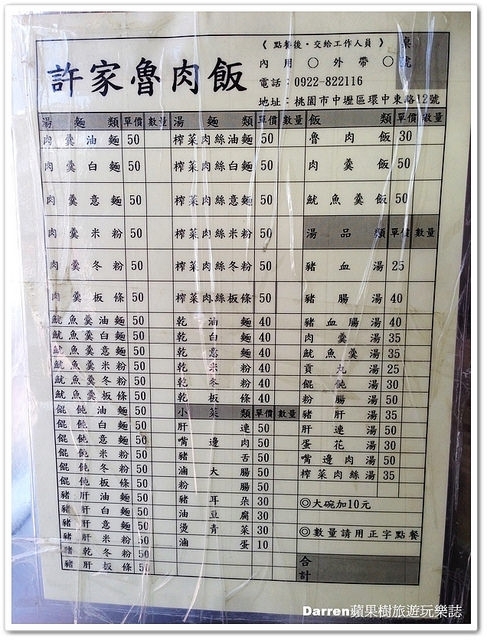 許家魯肉飯
《 點餐後·交給工作人員 》
桌號
內用○ 外帶○
電話:0922-822116
地址:桃園市中壢區環中東路12號
湯麵類 單價 數量
肉羹油麵 50
肉羹白麵 50
肉羹意麵 50
肉羹米粉 50
肉羹冬粉 50
肉羹板條 50
魷魚羹油麵 50
魷魚羹白麵 50
魷魚羹意麵 50
魷魚羹米粉 50
魷魚羹冬粉 50
魷魚羹板條 50
餛飩油麵 50
餛飩白麵 50
餛飩意麵 50
餛飩米粉 50
餛飩冬粉 50
餛飩板條 50
豬肝油麵 50
豬肝白麵 50
豬肝意麵 50
豬肝米粉 50
豬乾冬粉 50
豬肝板條 50
湯麵類 單價 數量
榨菜肉絲油麵 50
榨菜肉絲白麵 50
榨菜肉絲意麵 50
榨菜肉絲米粉 50
榨菜肉絲冬粉 50
榨菜肉絲板條 50
乾油麵 40
乾白麵 40
乾意麵 40
乾米粉 40
乾冬粉 40
乾板條 40
小菜類 單價 數量
肝連 50
嘴邊肉 50
豬舌 50
滷大腸 50
粉腸 50
豬耳朵 30
油豆腐 30
燙青菜 30
滷蛋 10
飯類 單價 數量
魯肉飯 30
肉羹飯 50
魷魚羹飯 50
湯品類 單價 數量
豬血湯 25
豬腸湯 40
豬血腸湯 40
肉羹湯 35
魷魚羹湯 35
貢丸湯 25
餛飩湯 30
粉腸湯 50
豬肝湯 35
肝連湯 50
蛋花湯 30
嘴邊肉湯 50
榨菜肉絲湯 35
◎大碗加10元
◎數量請用正字點餐
合計
Darren蘋果樹旅遊玩樂誌